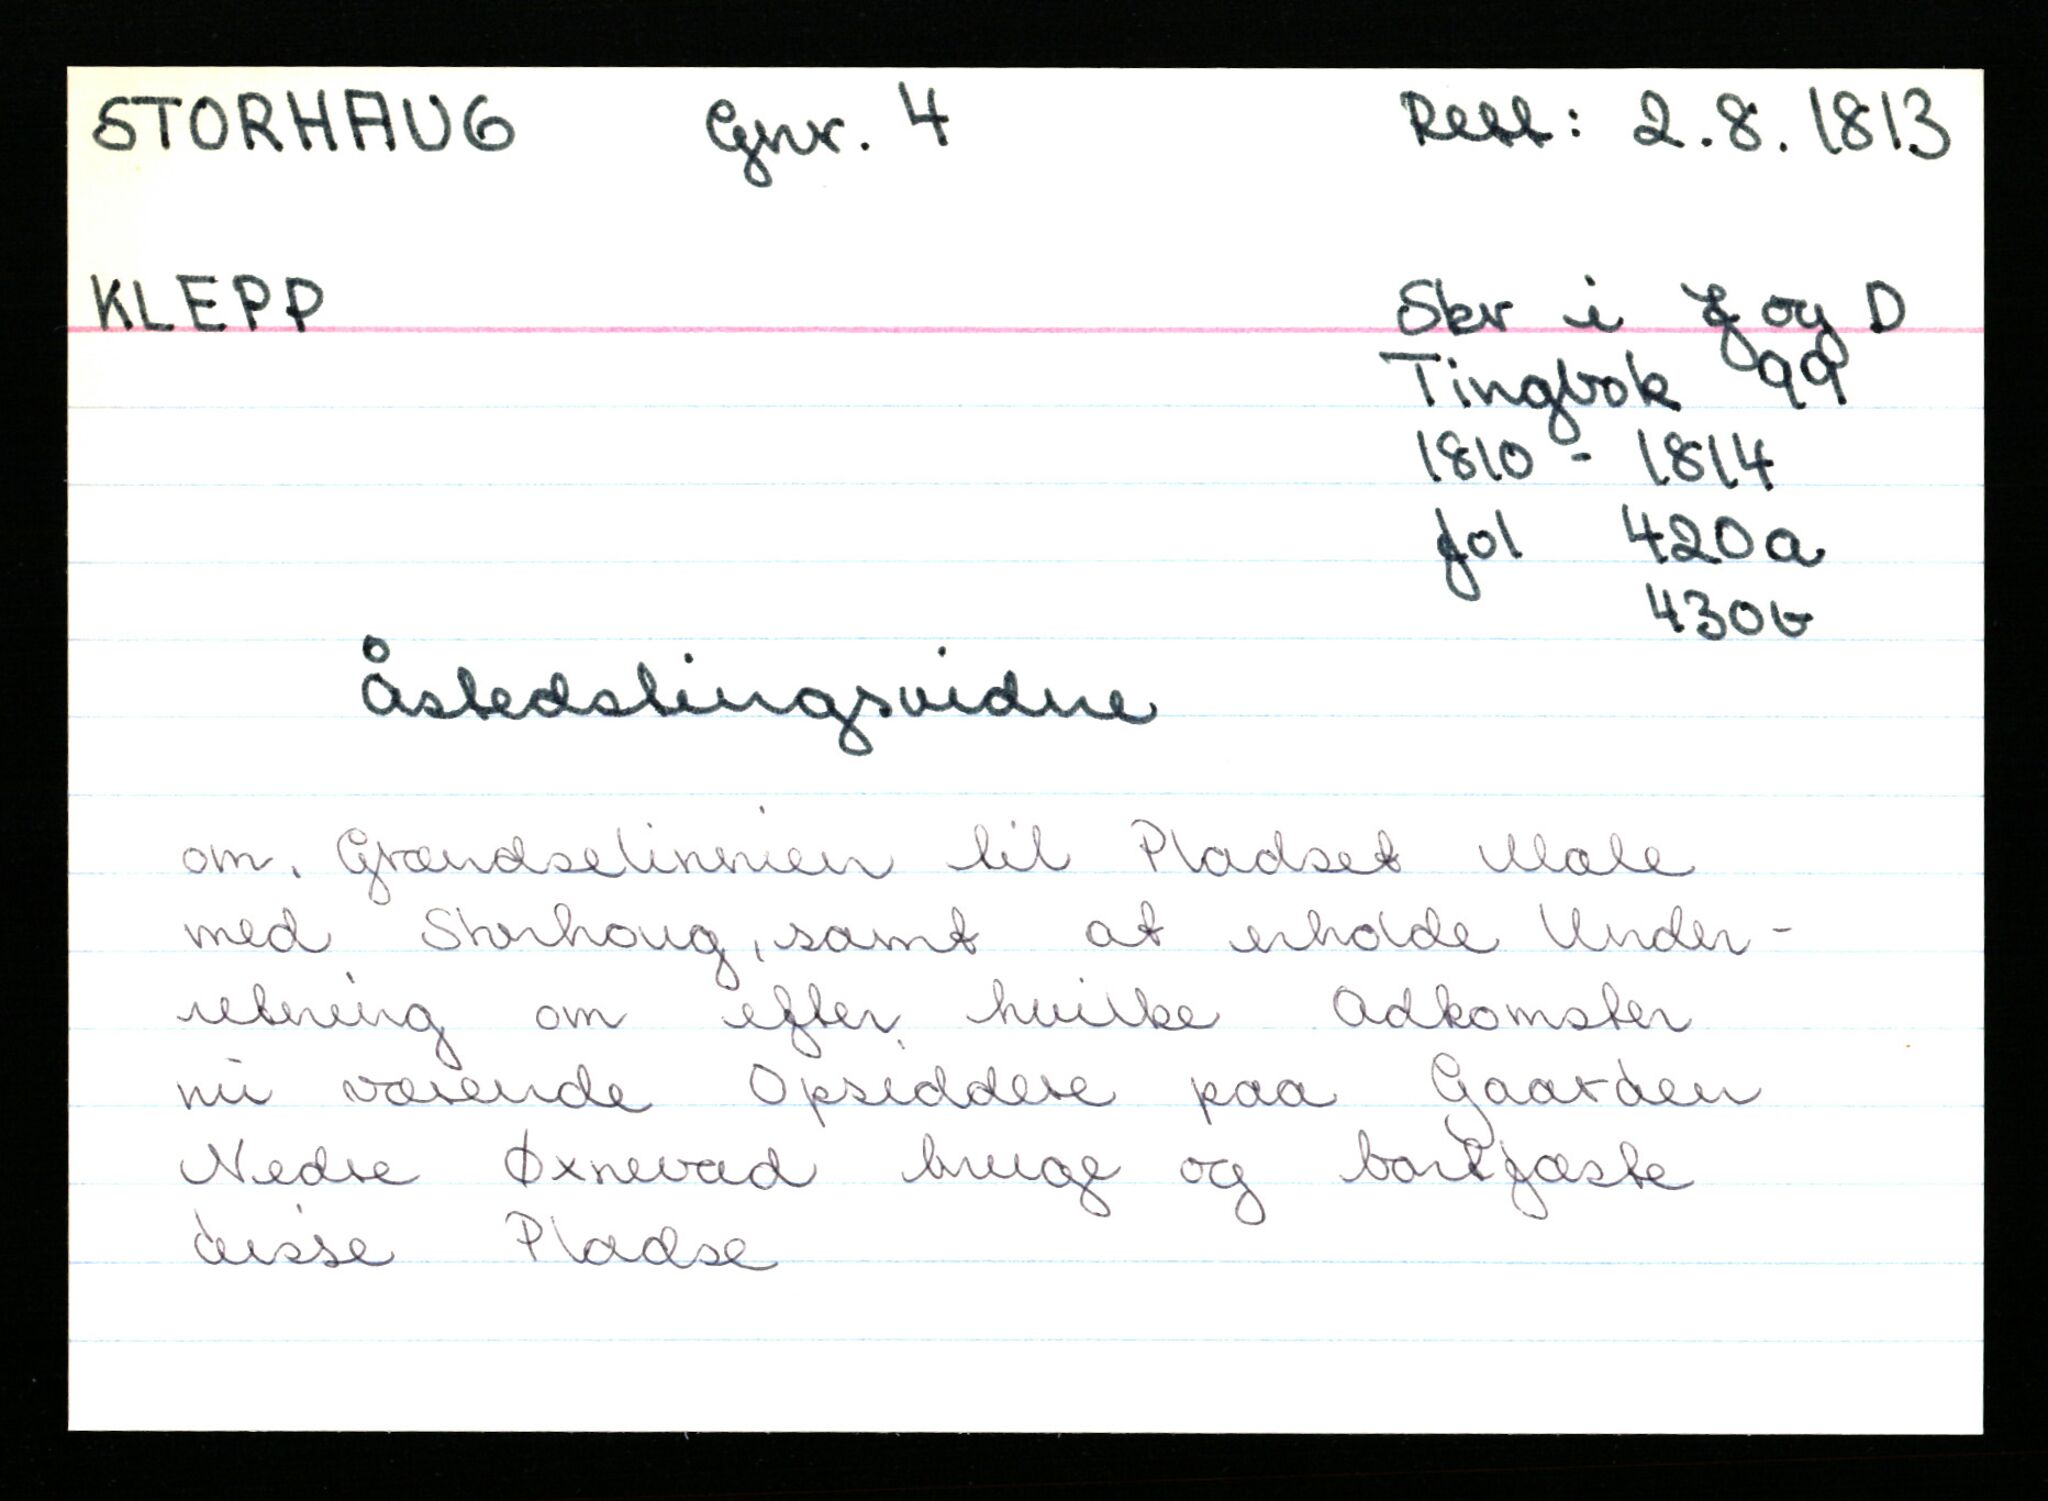 STORHAUG Gnr. 4 Rett: 2.8.1813
KLEPP Skr i J og D
Tingbok 99
1810 - 1814
fol 420a
430b
Åstedstingsvidne
om, Grændselinnien til Pladset Male
med Storhoug, samt at erholde Under-
retning om efter hvilke Adkomster
nu værende Opsiddere paa Gaarden
Nedre Øxnevad bruge og bortfæste
disse Pladse